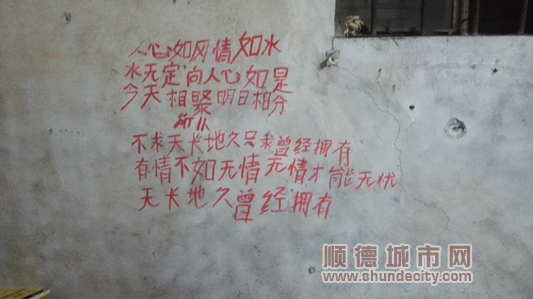 人心如风情如水
水无定向人心如是
今天相聚明日相分
所以
不求天长地久只求曾经拥有
有情不如无情无情才能无忧
天长地久曾经拥有
顺德城市网
www.shundecity.com